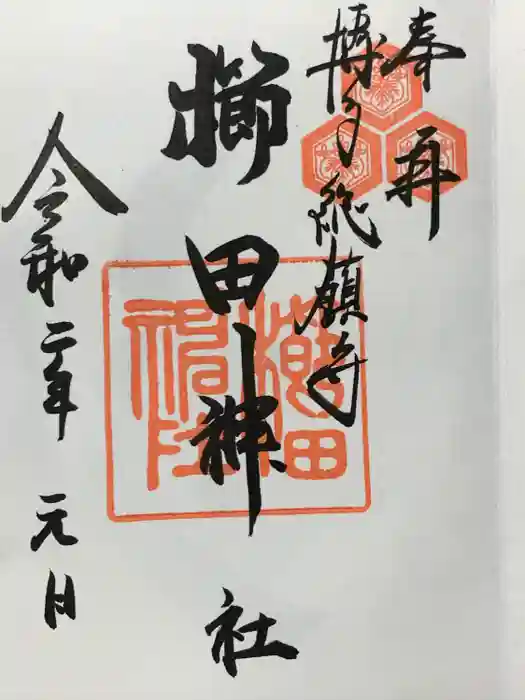 奉拝
博多総鎮守
櫛田神社
令和二年 元日
櫛田
神社